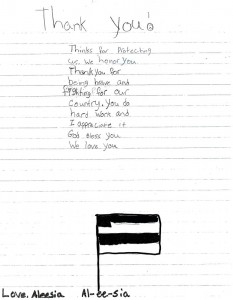 Thank you!
Thinks for Protecting
us. We honor you
Thank you for
being brave and
fighting for our
Country. you do
hard work and
I appreciate it
God Bless you
We love you
Love, Aleesia Al-ee-sia